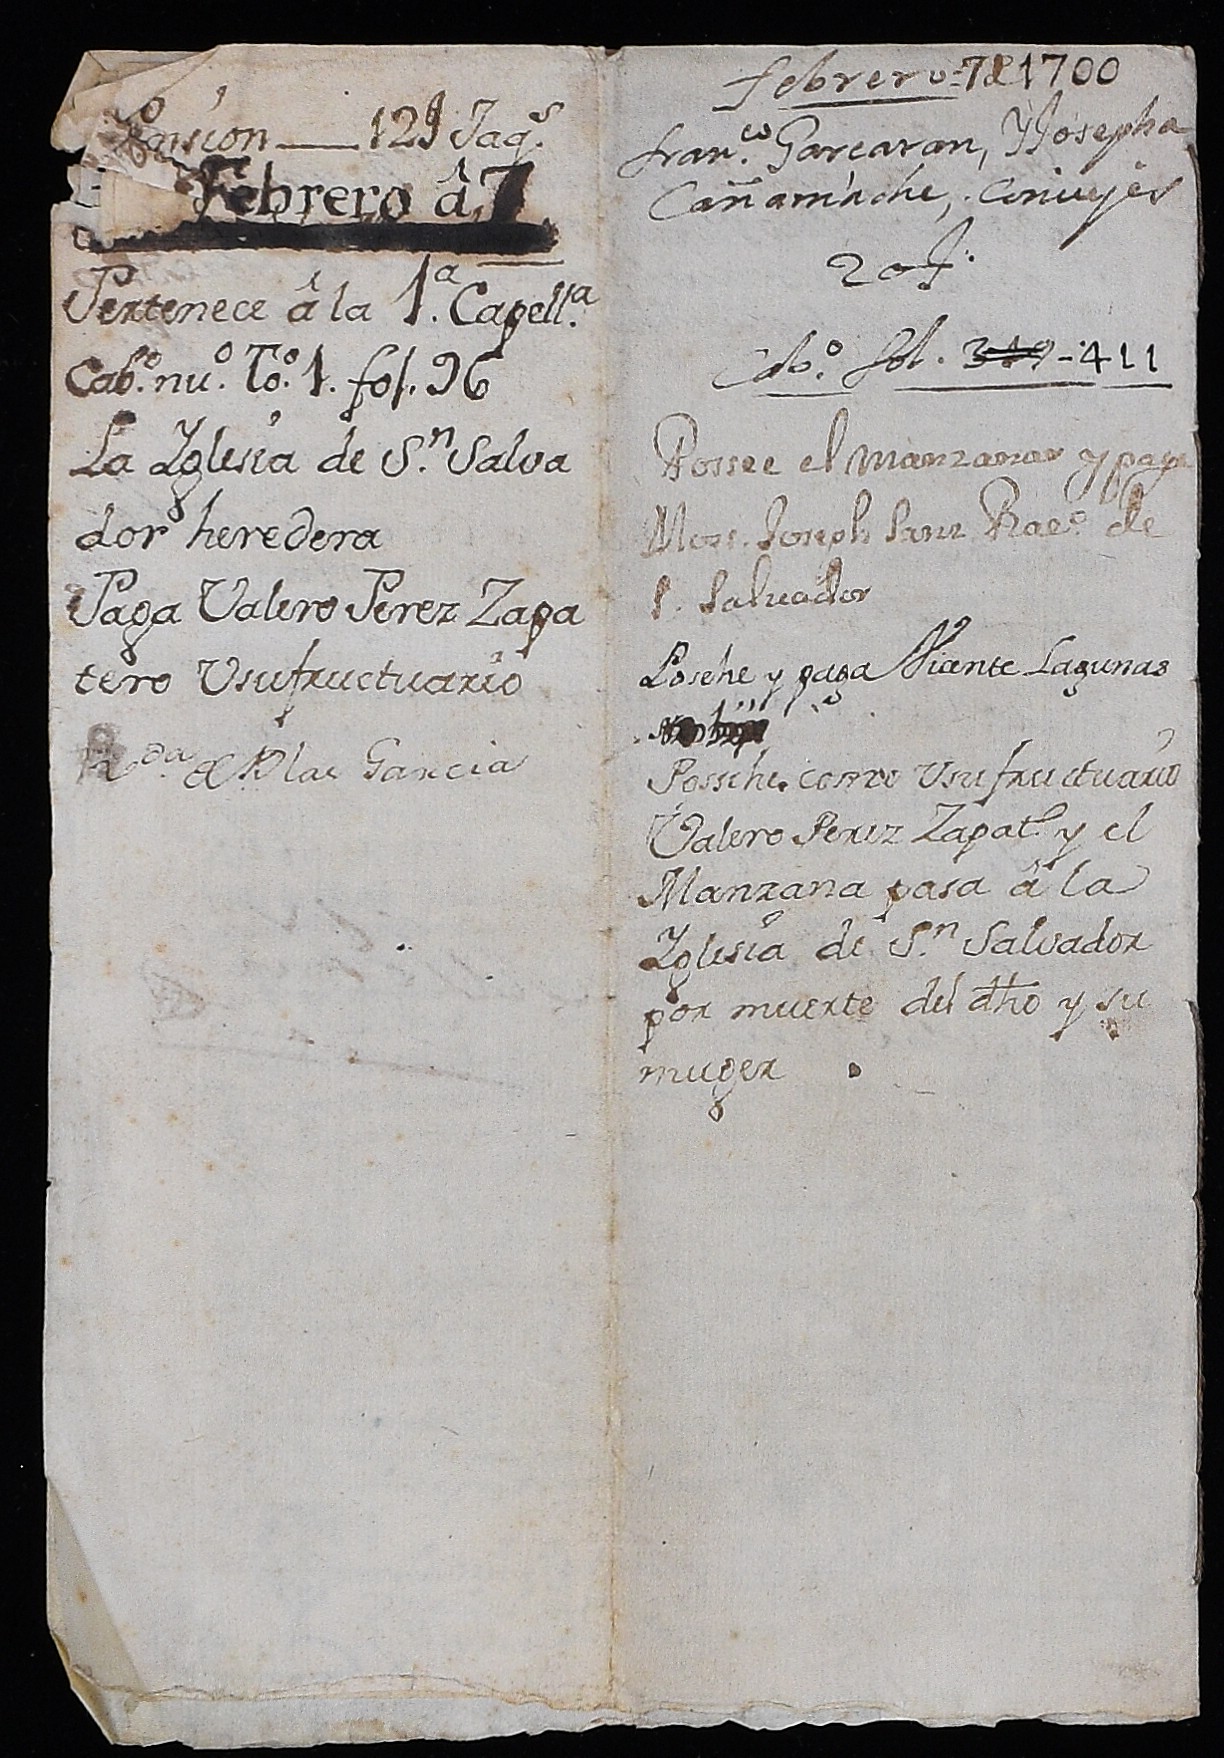 Pension — 12 Jaq.s
Febrero â 7
Pertenece â la 1.a Capell.a
Cab.o nu.o To.o 1. fol. 96
La Iglesia de S.n Salva
dor heredera
Paga Valero Perez Zapa
tero Usufructuario
Blas Garcia
febrero 7 1700
fran.co Garcaran, Y Josepha
Cañaminche, Coniujes
20
Cabo. fol. 411
Possee el manzanar y paga
Mosn. Joseph Sanz Rac.o de
S. Salvador
Posehe y paga Vicente Lagunas
Possehe como Usufructuario
Valero Perez Zapat.o y el
Manzana pasa â la
Iglesia de S.n Salvador
por muerte del dho y su
muger